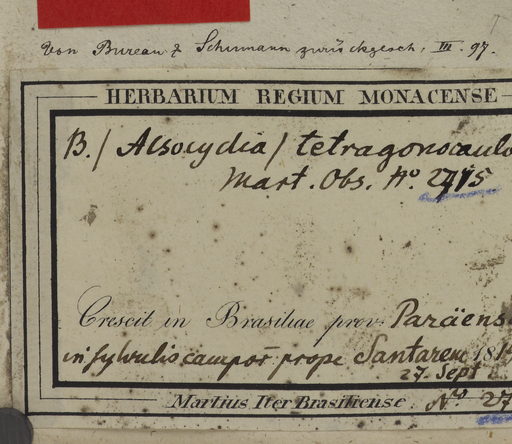 Von Bureau & Schumann zurückgesch. III. 97.
HERBARIUM REGIUM MONACENSE
B./ Alsocydia/ tetragonocaulo
Mart. Obs. No. 2715
Crescit in Brasiliae prov. Paräens
in sylvulis campor prope Santarem 181
27. Sept
Martius Iter Brasiliense No. 27